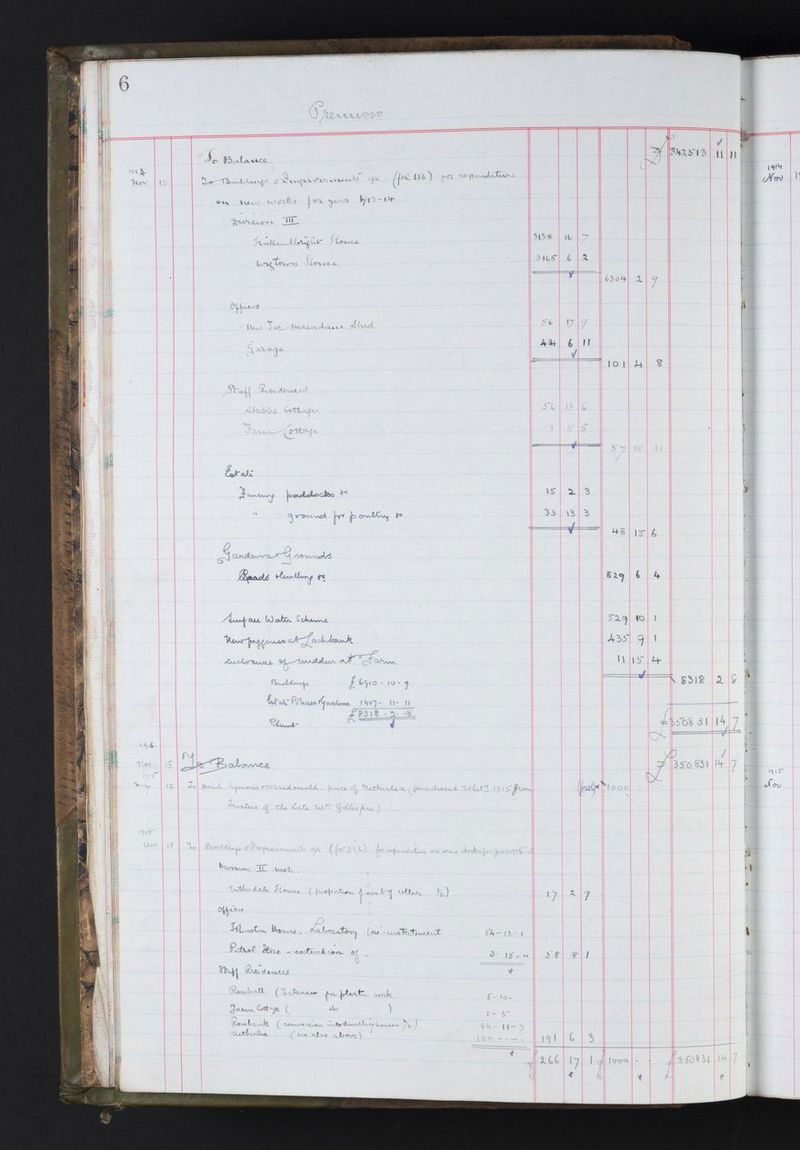 6
Premises
To Balance £ 342513 11 11
1914
Nov 15 To Buildings & Improvements a/c (fol 186) for expenditure
on new works for year 1913-14
Division III
Kirkcudbright House 3138 16 7
Wigtown House 3165 6 2
6304 2 9
Offices
Shed
Garage 44 6 11
101 4 8
Staff Residences
Stables Cottage 56 13 6
Farm Cottage 1 5 5
57 18 11
Estate
Fencing paddocks &c 15 2 3
" ground for poultry &c 33 13 3
48 15 6
Gardens & Grounds
Roads &c 829 6 4
Surface Water Scheme 529 10 1
New piggeries at Lochbank 435 9 1
enclosure of midden at Farm 11 15 4
8318 2 8
Buildings £6910-10-9
Estate Gardens 1407-11-11
£8318-2-8
£ 350831 14 7
1914
Nov 15 To Balance £ 350831 14 7
1915
To Macdonald, price of Netherlea (purchased Whit 1915 from
Trustees of the late Gillespie) 1000
1915
Nov 15 To Buildings & Improvements a/c for expenditure on new works for year
Division II male
House (proportion of cost of cellar &c) 17 2 7
Offices
Johnston House. Laboratory (re-instatement 54-13-1
Petrol Store - extension of 3-15-" 58 8 1
Staff Residences
Rosehall (Balance for plaster work 5-10-
Farm Cottage ( do ) 1-5-
Rosebank (conversion into dwelling houses &c) 84-11-3
Netherlea (see also above) 100-- 191 6 3
266 17 1 1000 - - £ 350831 14 7
1914
Nov 1
1915
Nov